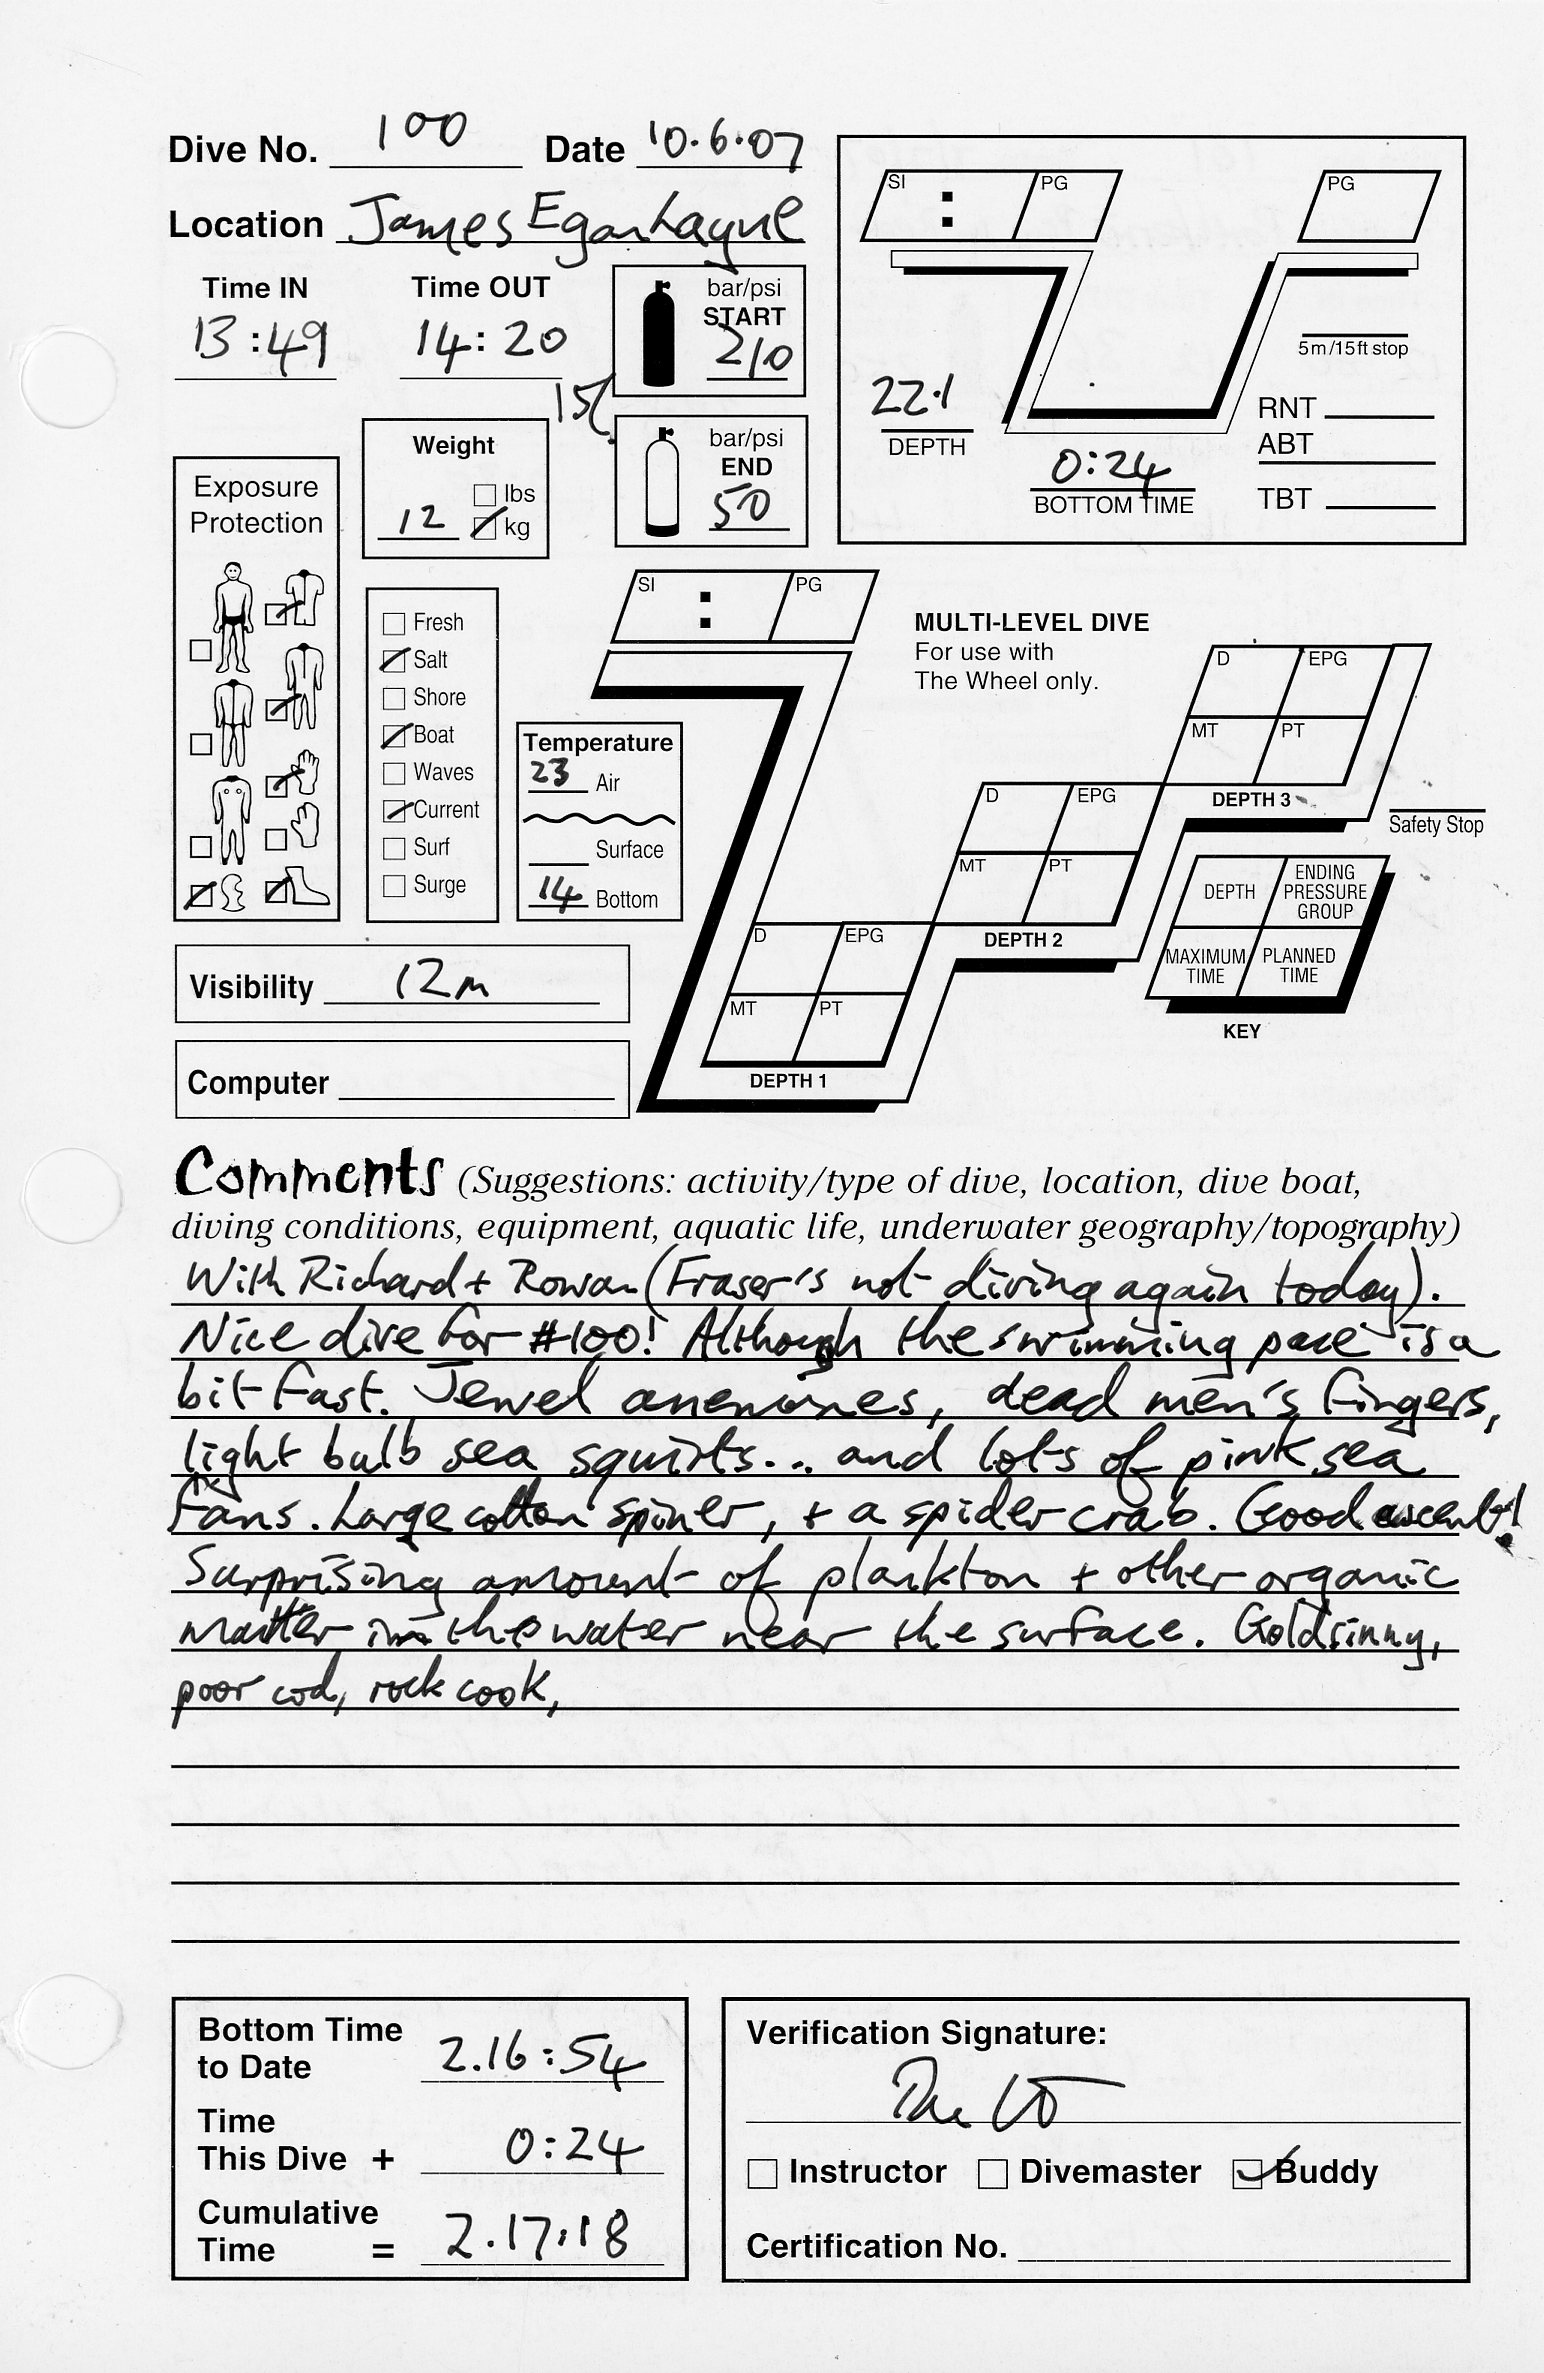 Dive No. 100 Date 10.6.07
Location James Eganhayne
Time IN
13:49
Time OUT
14:20
15l
bar/psi
START
210
bar/psi
END
50
Weight
lbs
12 kg
Exposure
Protection
Fresh
Salt
Shore
Boat
Waves
Current
Surf
Surge
Temperature
23 Air
Surface
14 Bottom
Visibility 12m
Computer
SI : PG
PG
22.1
DEPTH
0:24
BOTTOM TIME
5m/15ft stop
RNT
ABT
TBT
SI : PG
MULTI-LEVEL DIVE
For use with
The Wheel only.
D EPG
MT PT
DEPTH 3
Safety Stop
D EPG
MT PT
DEPTH 2
D EPG
MT PT
DEPTH 1
DEPTH
ENDING
PRESSURE
GROUP
MAXIMUM
TIME
PLANNED
TIME
KEY
Comments (Suggestions: activity/type of dive, location, dive boat,
diving conditions, equipment, aquatic life, underwater geography/topography)
With Richard + Rowan (Fraser's not diving again today).
Nice dive for #100! Although the swimming pace is a
bit fast. Jewel anemones, dead men's fingers,
light bulb sea squirts... and lots of pink sea
fans. Large cotton spinner, + a spider crab. Good ascent!
Surprising amount of plankton + other organic
matter in the water near the surface. Goldsinny,
poor cod, rock cook,
Bottom Time
to Date 2.16:54
Time
This Dive + 0:24
Cumulative
Time = 2.17:18
Verification Signature:
Instructor Divemaster Buddy
Certification No.